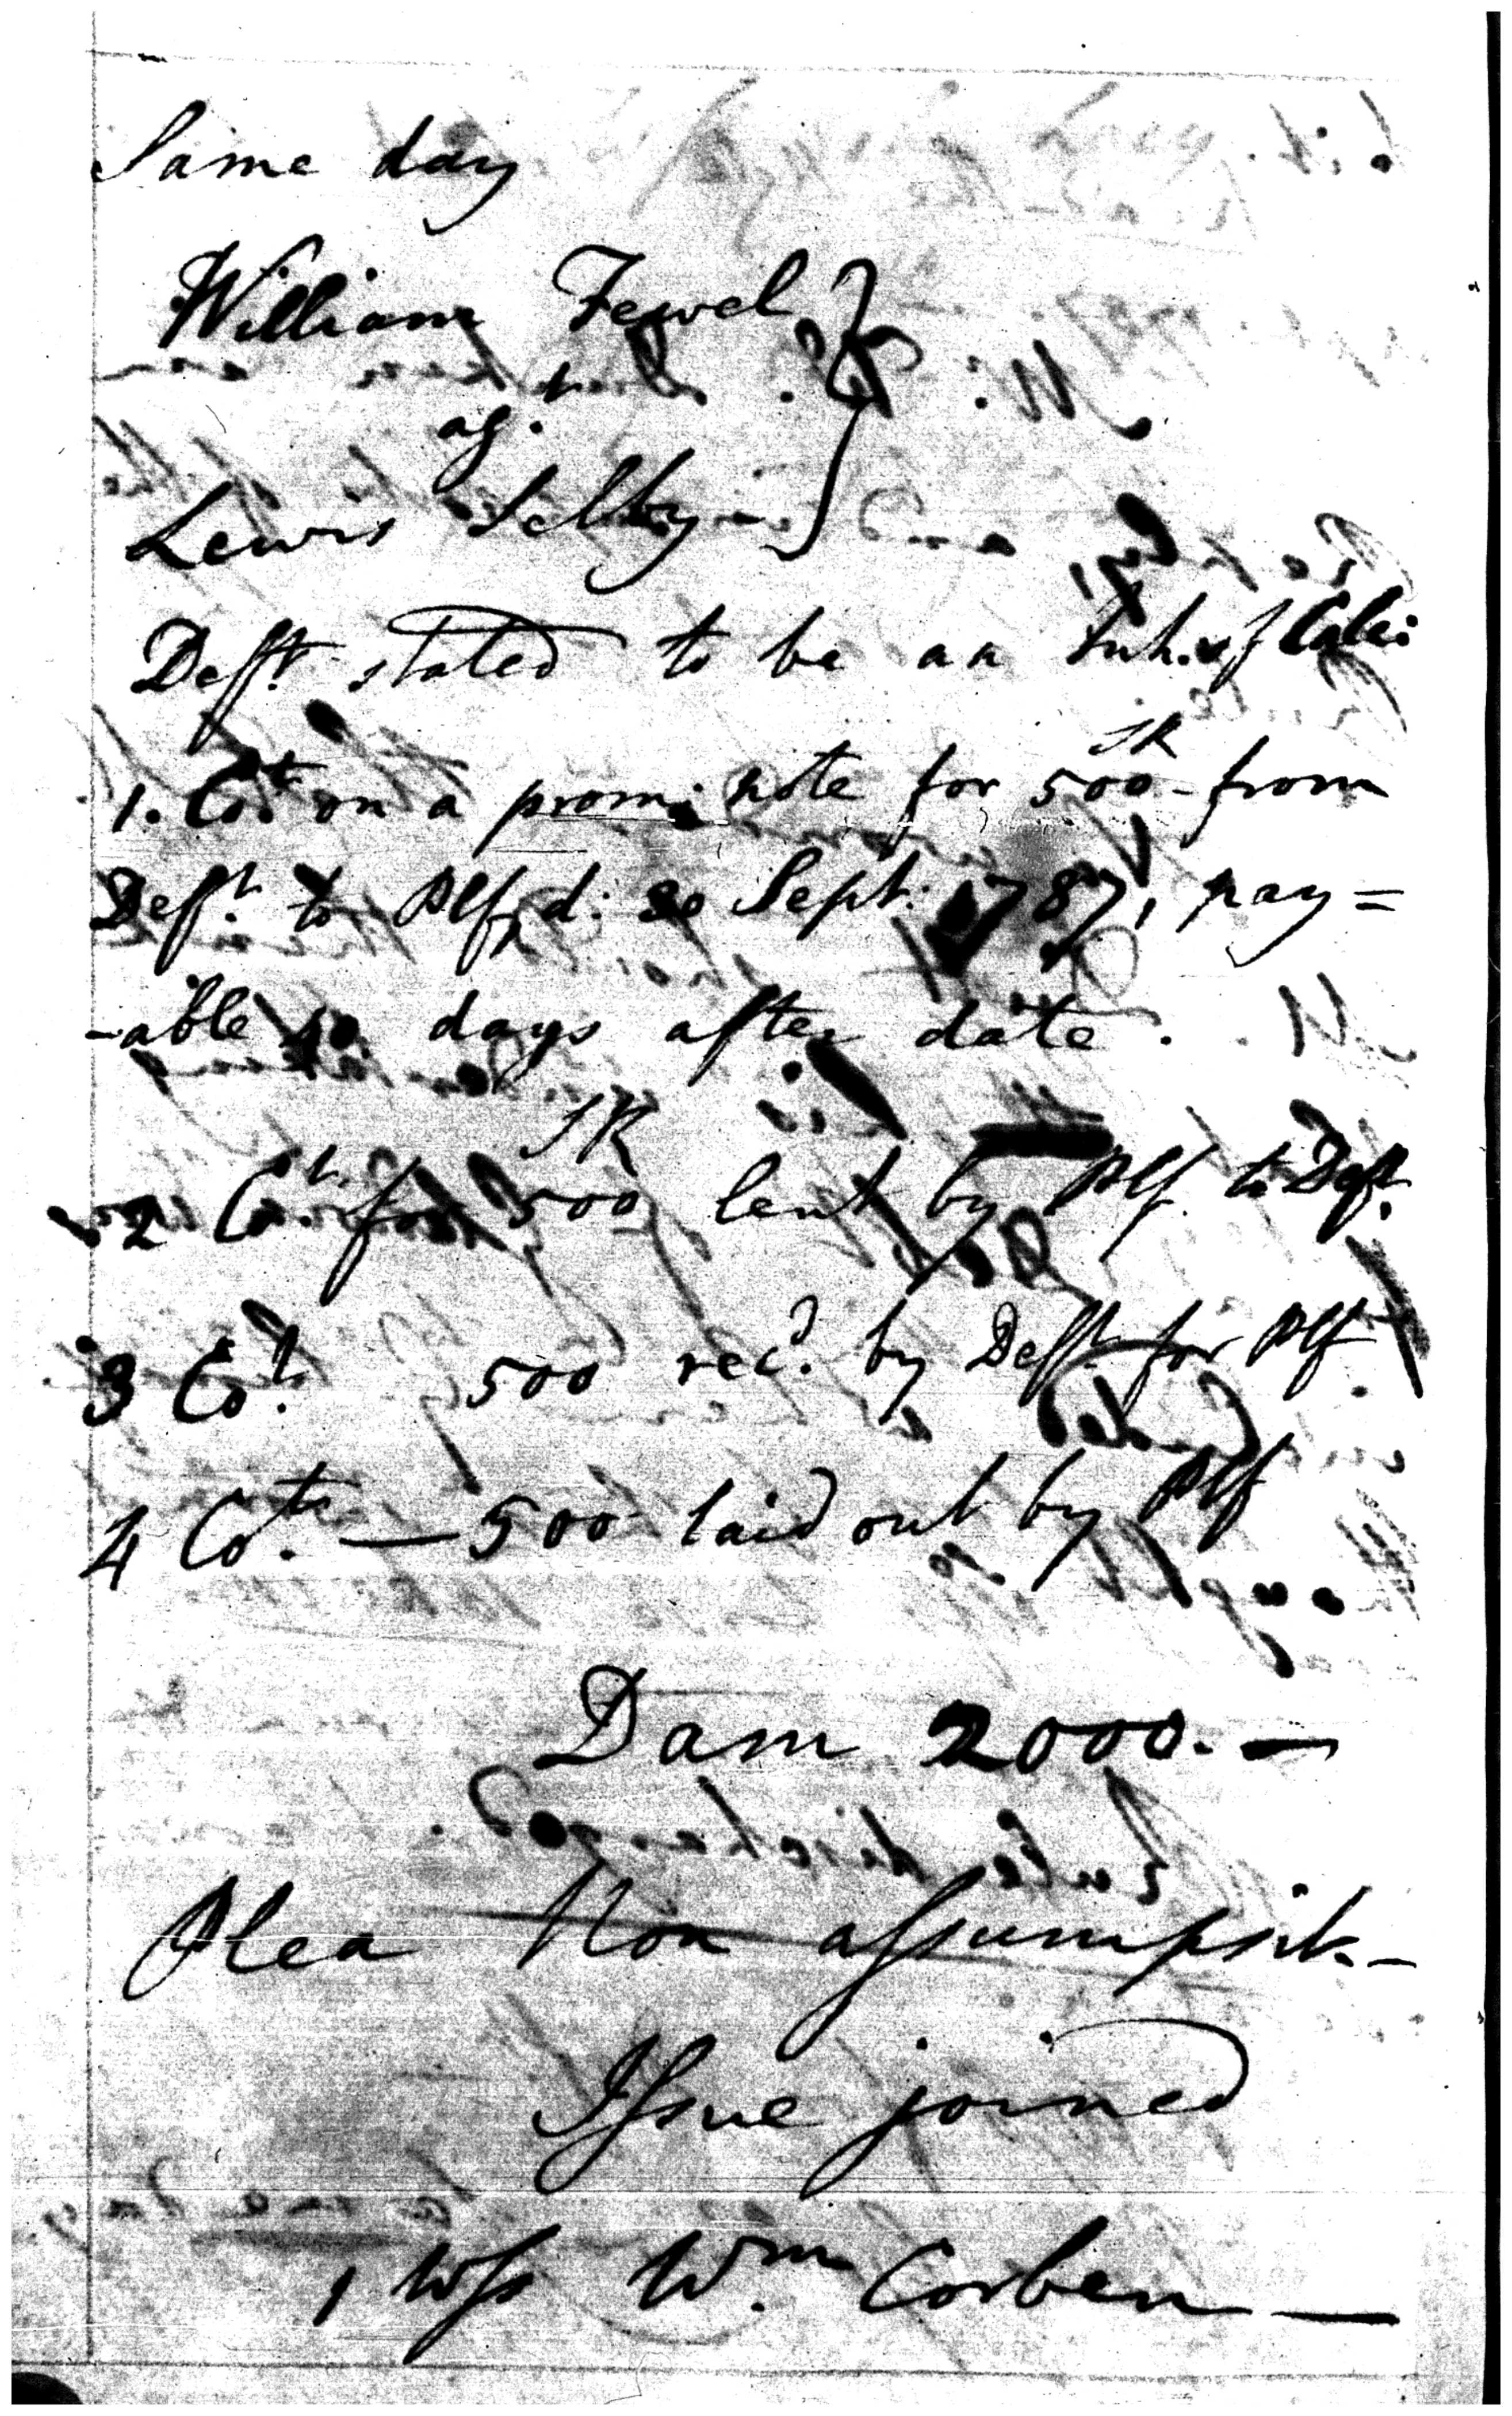 Same day
William Fewel
agt.
Lewis Selby
Deft. stated to be an Inh. of Calc:
SR
1. Cot. on a prom: note for 500 - from
Deft. to Plf, d: 30 Sept: 1787, pay=
-able days after date.
SR
2 Cot. for 500 lent by Plf. to Deft.
3 Cot. 500 recd. by Deft. for Plf
4 Cot. — 500 laid out by Plf
Dam 2000. —
Plea Non assumpsit. —
Issue joined
1 Wss Wm. Corben —